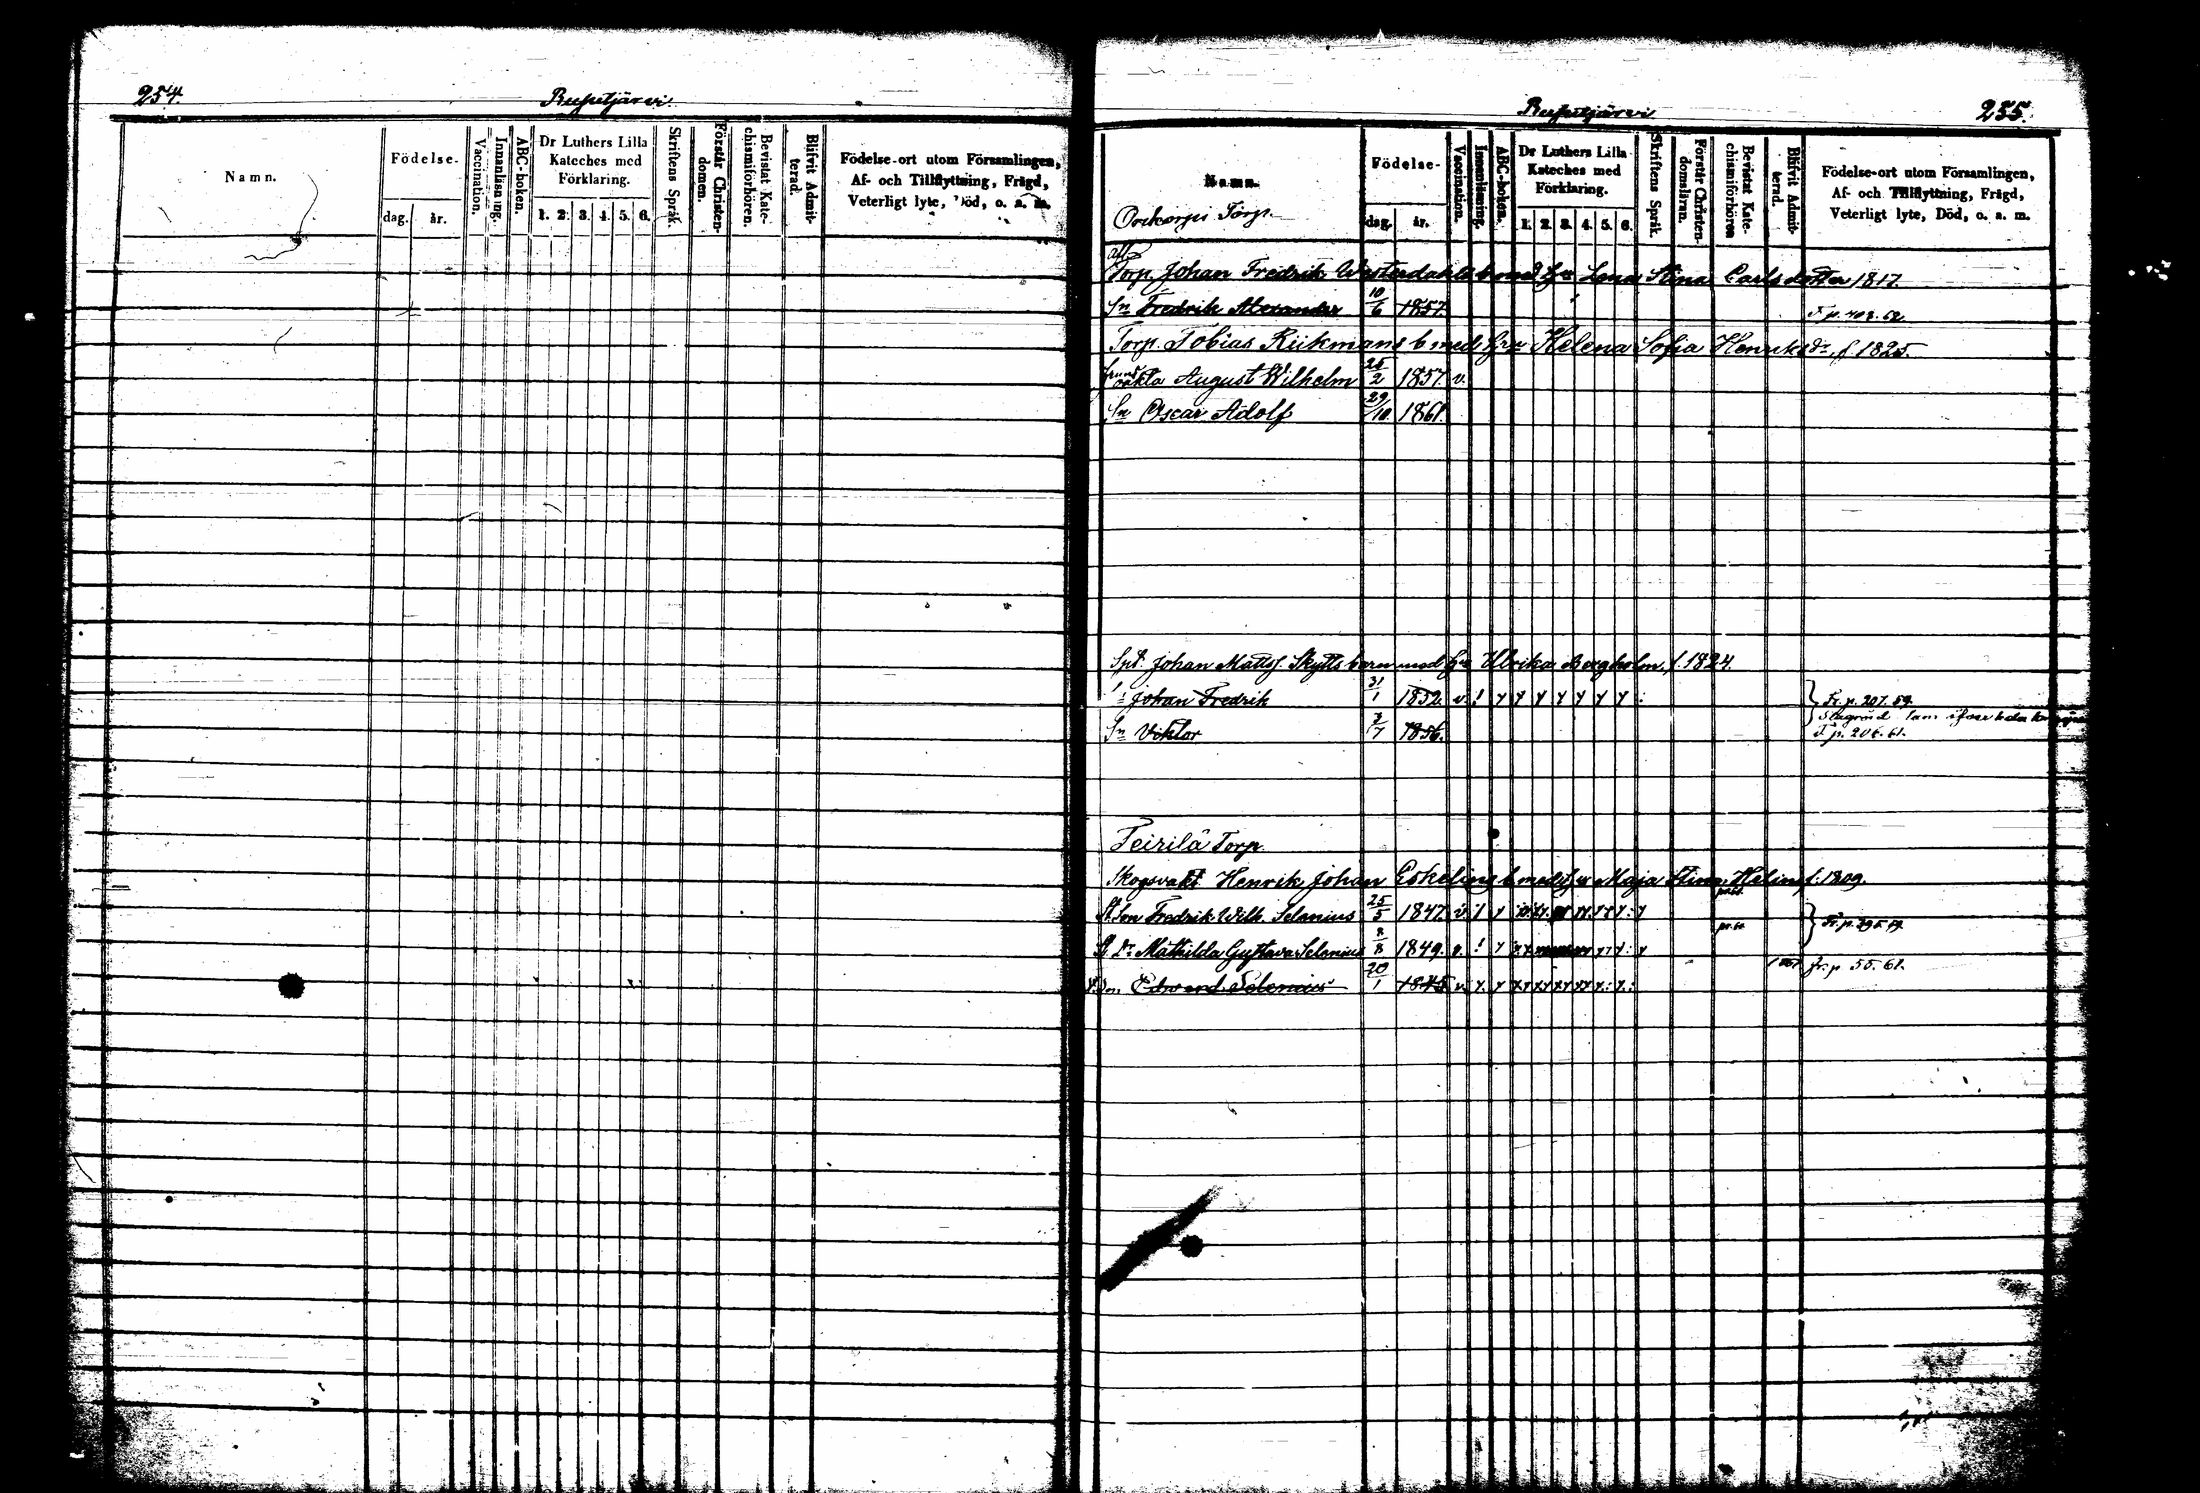 254.
Rupetjärvi
Namn.
Födelse-
dag. år.
Vaccination.
Innanläsning.
ABC-boken.
Dr Luthers Lilla
Kateches med
Förklaring.
1. 2. 3. 4. 5. 6.
Skriftens Språk.
Förstår Christen-
domen.
Bevistat Kate-
chismiförhören.
Blifvit Admit-
terad.
Födelse-ort utom Församlingen,
Af- och Tillflyttning, Frägd,
Veterligt lyte, Död, o. a. m.
Rupetjärvi
255.
Namn.
Torp.
Födelse-
dag. år.
Vaccination.
Innanläsning.
ABC-boken.
Dr Luthers Lilla
Kateches med
Förklaring.
1. 2. 3. 4. 5. 6.
Skriftens Språk.
Förstår Christen-
domsläran.
Bevistat Kate-
chismiförhören
Blifvit Admit-
terad.
Födelse-ort utom Församlingen,
Af- och Tillflyttning, Frägd,
Veterligt lyte, Död, o. a. m.
Torp. Johan Fredrik Westerdahls b med hu Lena Stina Carlsdotter 1817.
Sn Fredrik Alexander 10/6 1857
Torp. Tobias Riikmans b med hru Helena Sofia Henriksdr. f. 1825.
August Wilhelm 25/2 1857. v.
Sn Oscar Adolf 29/10 1861.
Johan Matts. Skytts barn med hu Ulrika Bergholm, f. 1824.
Johan Fredrik 31/1 1852 v. ! y y y y y y y Fr. p. 207. 59.
Sn Viktor 3/7 1856.
Teirilä Torp.
Skogsvakt Henrik Johan Eskelins b med hu Maja Stina Helin f. 1809.
St. Son Fredrik Wilh. Selenius 25/5 1847.
St. Dr Mathilda Gustava Selenius 8/8 1849.
Edward Selenius 20/1 1845 fr. p 55. 61.